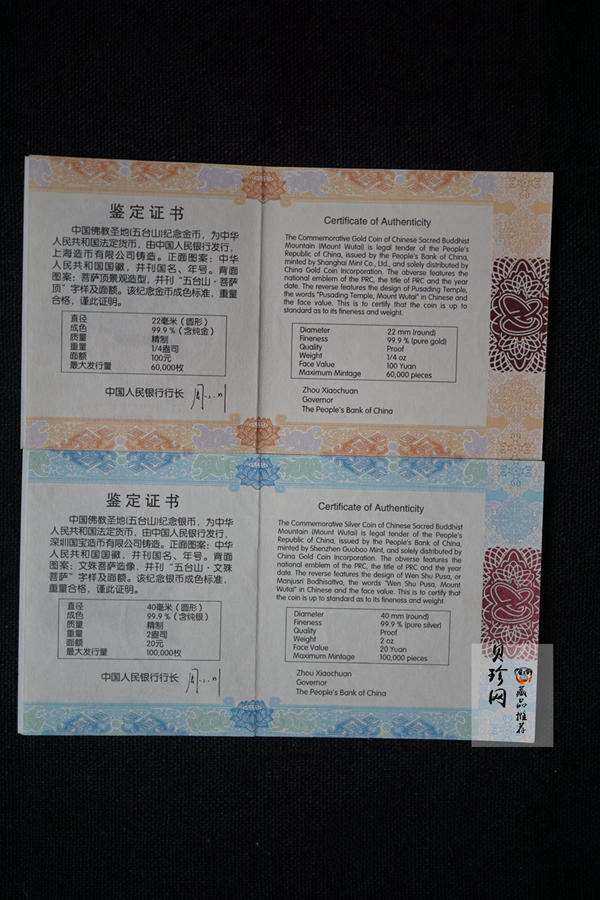 鉴定证书
中国佛教圣地(五台山)纪念金币，为中华
人民共和国法定货币，由中国人民银行发行，
上海造币有限公司铸造。正面图案：中华
人民共和国国徽，并刊国名、年号。背面
图案：菩萨顶景观造型，并刊“五台山·菩萨
顶”字样及面额。该纪念金币成色标准，重量
合格，谨此证明。
直径 22毫米（圆形）
成色 99.9％（含纯金）
质量 精制
重量 1/4盎司
面额 100元
最大发行量 60,000枚
中国人民银行行长
Certificate of Authenticity
The Commemorative Gold Coin of Chinese Sacred Buddhist
Mountain (Mount Wutai) is legal tender of the People's
Republic of China, issued by the People's Bank of China,
minted by Shanghai Mint Co., Ltd., and solely distributed by
China Gold Coin Incorporation. The obverse features the
national emblem of the PRC, the title of PRC and the year
date. The reverse features the design of Pusading Temple,
the words "Pusading Temple, Mount Wutai" in Chinese and
the face value. This is to certify that the coin is up to
standard as to its fineness and weight.
Diameter 22 mm (round)
Fineness 99.9 % (pure gold)
Quality Proof
Weight 1/4 oz
Face Value 100 Yuan
Maximum Mintage 60,000 pieces
Zhou Xiaochuan
Governor
The People's Bank of China
鉴定证书
中国佛教圣地(五台山)纪念银币，为中华
人民共和国法定货币，由中国人民银行发行，
深圳国宝造币有限公司铸造。正面图案：中华
人民共和国国徽，并刊国名、年号。背面
图案：文殊菩萨造像，并刊“五台山·文殊
菩萨”字样及面额。该纪念银币成色标准，
重量合格，谨此证明。
直径 40毫米（圆形）
成色 99.9％（含纯银）
质量 精制
重量 2盎司
面额 20元
最大发行量 100,000枚
中国人民银行行长
Certificate of Authenticity
The Commemorative Silver Coin of Chinese Sacred Buddhist
Mountain (Mount Wutai) is legal tender of the People's
Republic of China, issued by the People's Bank of China,
minted by Shenzhen Guobao Mint, and solely distributed by
China Gold Coin Incorporation. The obverse features the
national emblem of the PRC, the title of PRC and the year
date. The reverse features the design of Wen Shu Pusa, or
Manjusri Bodhisattva, the words "Wen Shu Pusa, Mount
Wutai" in Chinese and the face value. This is to certify that
the coin is up to standard as to its fineness and weight.
Diameter 40 mm (round)
Fineness 99.9 % (pure silver)
Quality Proof
Weight 2 oz
Face Value 20 Yuan
Maximum Mintage 100,000 pieces
Zhou Xiaochuan
Governor
The People's Bank of China
贝珍网
藏品推荐